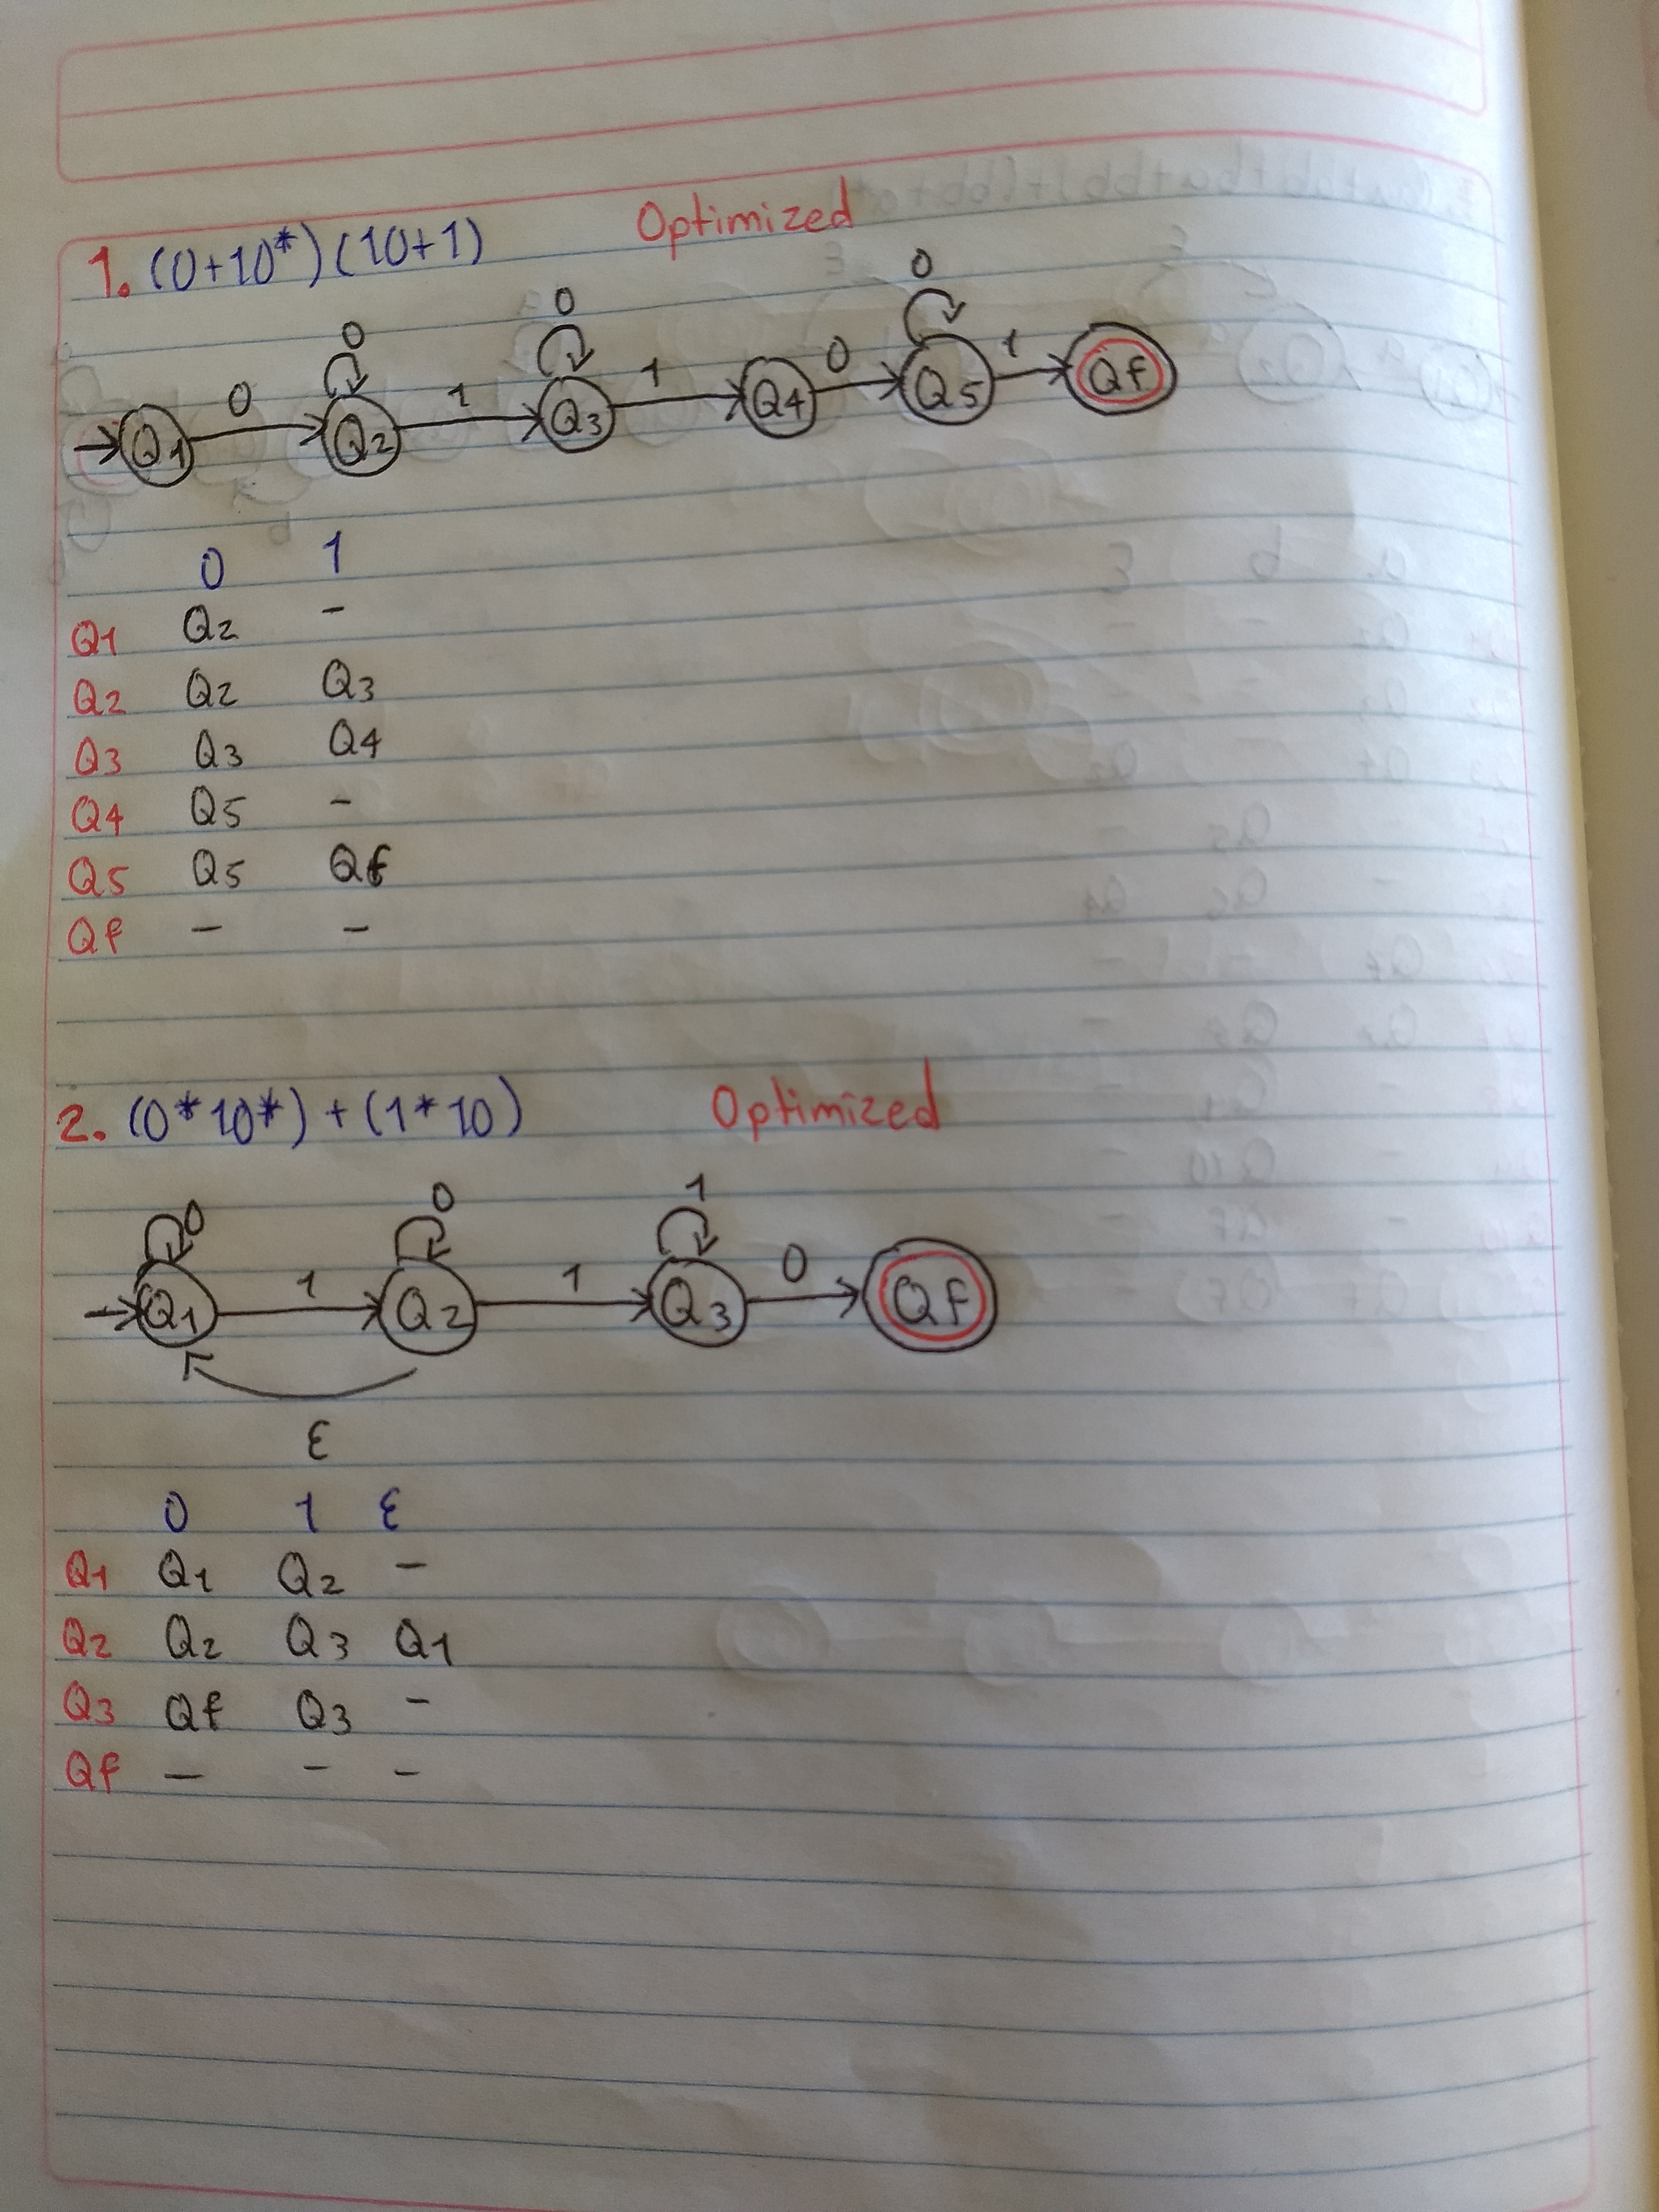 1. (0+10*)(10+1) Optimized
0 0 0
0 1 1 0 1
Q1 Q2 Q3 Q4 Q5 Qf
0 1
Q1 Q2 -
Q2 Q2 Q3
Q3 Q3 Q4
Q4 Q5 -
Q5 Q5 Qf
Qf - -
2. (0*10*)+(1*10) Optimized
0 0 1
1 1 0
Q1 Q2 Q3 Qf
ε
0 1 ε
Q1 Q1 Q2 -
Q2 Q2 Q3 Q1
Q3 Qf Q3 -
Qf - - -